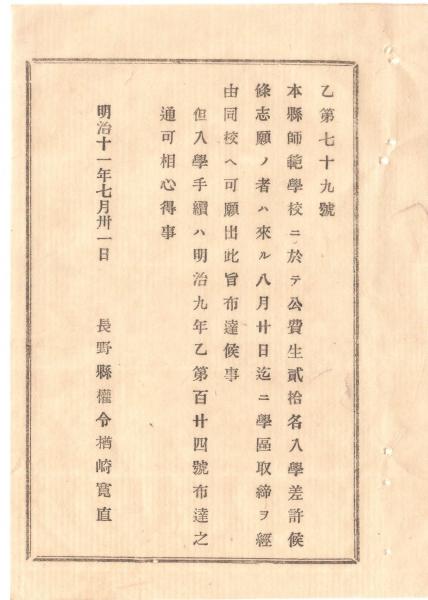 乙第七十九號
本縣師範學校ニ於テ公費生貳拾名入學差許候
條志願ノ者ハ來ル八月廿日迄ニ學區取締ヲ經
由同校ヘ可願出此旨布達候事
但入學手續ハ明治九年乙第百廿四號布達之
通可相心得事
明治十一年七月卅一日
長野縣權令楢崎寬直